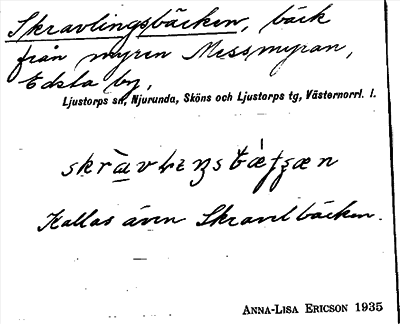 Skravlingsbäcken, bäck
från myren Messmyran,
Edsta by,
Ljustorps sn, Njurunda, Sköns och Ljustorps tg, Västernorrl. l.
Kallas även Skravelbäcken.
ANNA-LISA ERICSON 1935